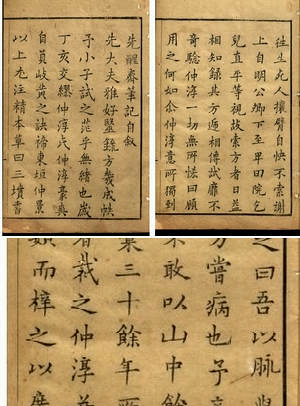 先醒齋筆記自敘
先大夫雅好醫錄方幾成帙
予小子試之茫乎無緒也歲
丁亥交繆仲淳氏仲淳豪爽
自負岐黃之訣禘東垣仲景
以上尤注精本草曰三墳書
往生死人攘臂自快不索謝
上自明公卿下至卑田院乞
兒直平等視故索方者日益
相知錄其方遞相傳試靡不
奇驗仲淳一切無所恡回顧
用之何如余仲淳意所獨到
之曰吾以脈
方嘗病也予
敢以山中餘
三十餘年所
者裁之仲淳
而梓之以廣